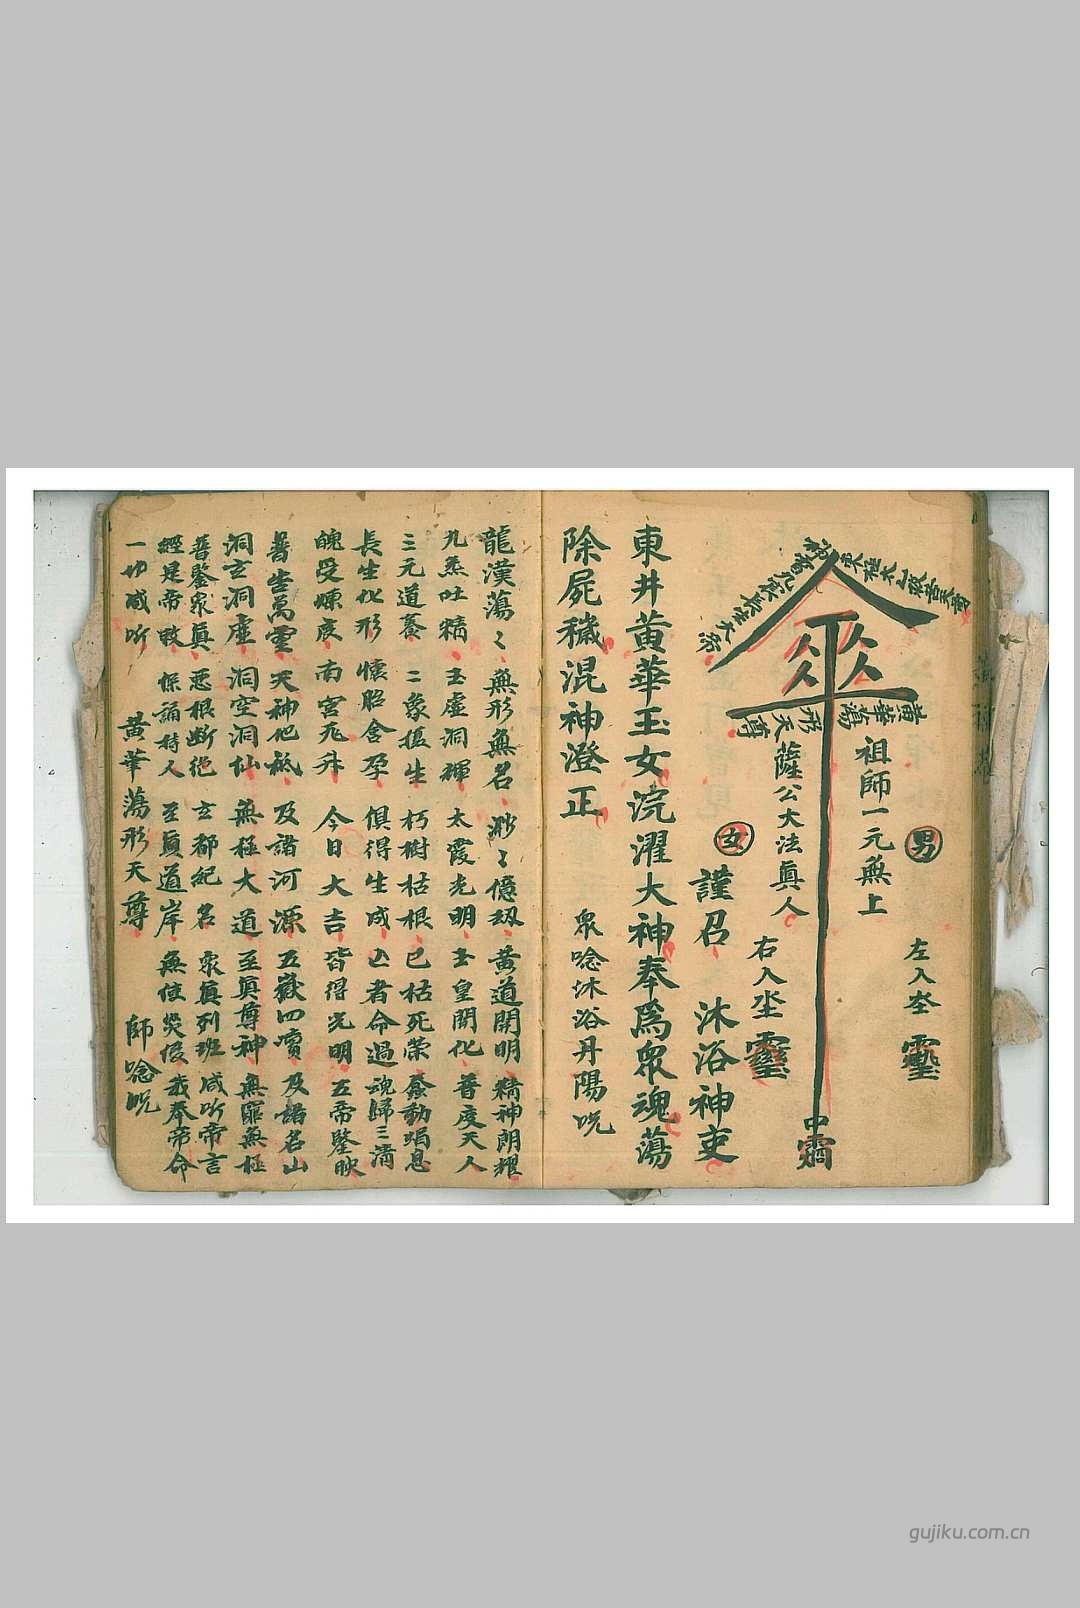 男
左入坔
祖師一元無上
薩公大法真人
女
右入坔
中
黃華蕩
形天尊
謹召　沐浴神吏
東井黃華玉女浣濯大神奉為衆魂蕩
除屍穢混神澄正
衆唸沐浴丹陽咒
龍漢蕩〻無形無名　渺〻億劫　黃道開明　精神朗耀
九炁吐精　玉虛洞輝　太霞光明　玉皇開化　普度天人
三元道養　二象攝生　朽樹枯根　已枯死榮　蠢動蝸息
長生化形　懷胎含孕　俱得生成　亡者命過　魂歸三清
魄受煉度　南宮飛升　今日大吉　皆得光明　五帝鑒映
普告萬靈　天神地祇　及諸河源　五嶽四瀆　及諸名山
洞玄洞虛　洞空洞仙　無極大道　至真尊神　無窮無極
普鑒衆真　惡根斷絕　玄都紀名　衆真列班　咸听帝言
經是帝敕　保誦持人　至真道岸　無住災役　我奉帝命
一切咸听　黃華蕩形天尊　師唸咒
gujiku.com.cn